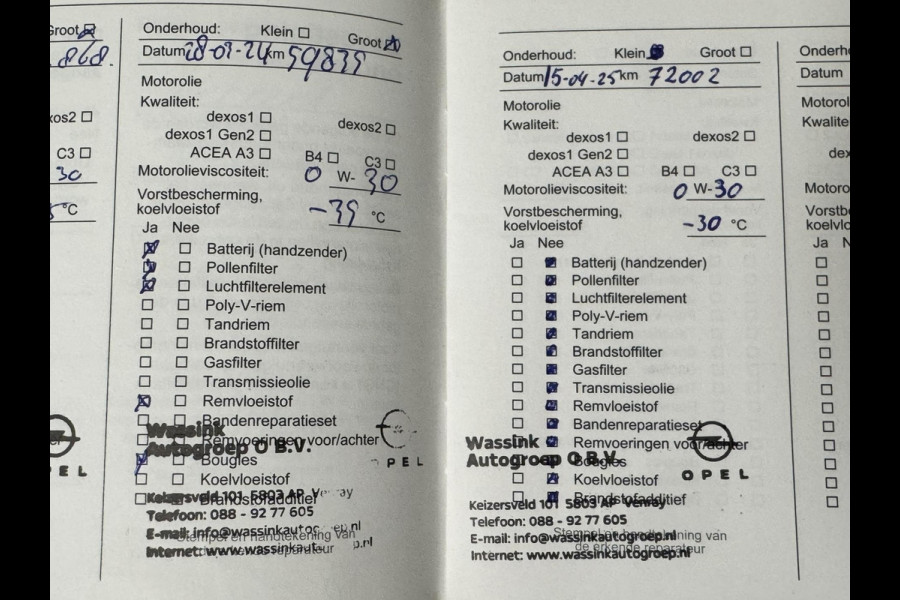 Groot
868.
xos2
C3
30
°C
EL
Onderhoud: Klein Groot
Datum 28-03-24 km 59835
Motorolie
Kwaliteit:
dexos1 dexos2
dexos1 Gen2
ACEA A3 B4 C3
Motorolieviscositeit: 0 W- 30
Vorstbescherming,
koelvloeistof -39 °C
Ja Nee
Batterij (handzender)
Pollenfilter
Luchtfilterelement
Poly-V-riem
Tandriem
Brandstoffilter
Gasfilter
Transmissieolie
Remvloeistof
Bandenreparatieset
Remvoeringen voor/achter
Bougies
Koelvloeistof
Brandstofadditief
Wassink
Autogroep O B.V.
PEL
Keizersveld 101 5803 AP Venray
Telefoon: 088 - 92 77 605
E-mail: info@wassinkautoc ep.nl
Stempel en handtekening van
Internet: www.wassinkaut p.nl
reparateur
Onderhoud: Klein Groot
Datum 15-04-25 km 72002
Motorolie
Kwaliteit:
dexos1 dexos2
dexos1 Gen2
ACEA A3 B4 C3
Motorolieviscositeit: 0 W-30
Vorstbescherming,
koelvloeistof -30 °C
Ja Nee
Batterij (handzender)
Pollenfilter
Luchtfilterelement
Poly-V-riem
Tandriem
Brandstoffilter
Gasfilter
Transmissieolie
Remvloeistof
Bandenreparatieset
Remvoeringen voor/achter
Bougies
Koelvloeistof
Brandstofadditief
Wassink
Autogroep O B.V.
OPEL
Keizersveld 101 5803 AP Venray
Telefoon: 088 - 92 77 605
E-mail: info@wassinkautogroep.nl
Stempel en handtekening van
de erkende reparateur
Internet: www.wassinkautogroep.nl
Onderh
Datum
Motorol
Kwalite
dex
Motoro
Vorstb
koelvlo
Ja N